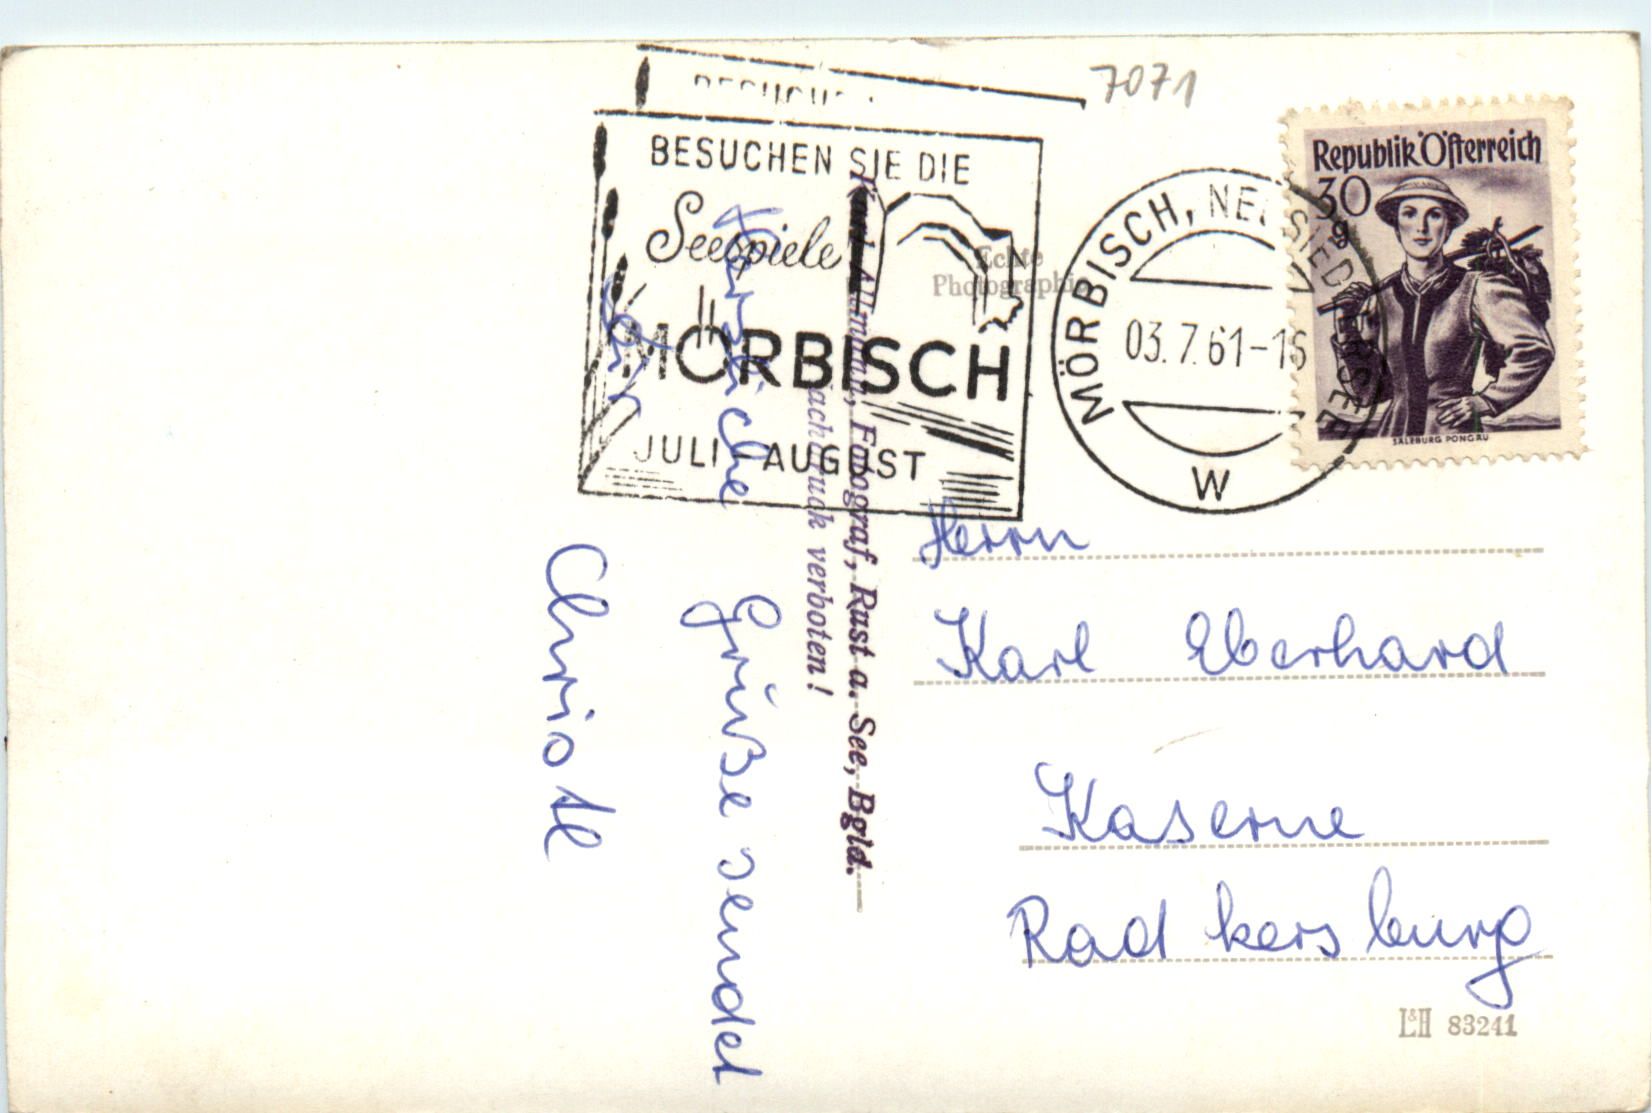 7071
BESUCHEN SIE DIE
Seespiele
MÖRBISCH
JULI-AUGUST
MÖRBISCH, NEUSIEDLERSEE
03.7.61-16
W
Republik Österreich
30
g
SALZBURG PONGAU
Echte
Photographie
Allmann, Fotograf, Rust a. See, Bgld.
Nachdruck verboten!
Herzliche Grüße sendet
dir Christl
Herrn
Karl Eberhard
Kaserne
Radkersburg
L&H 83241